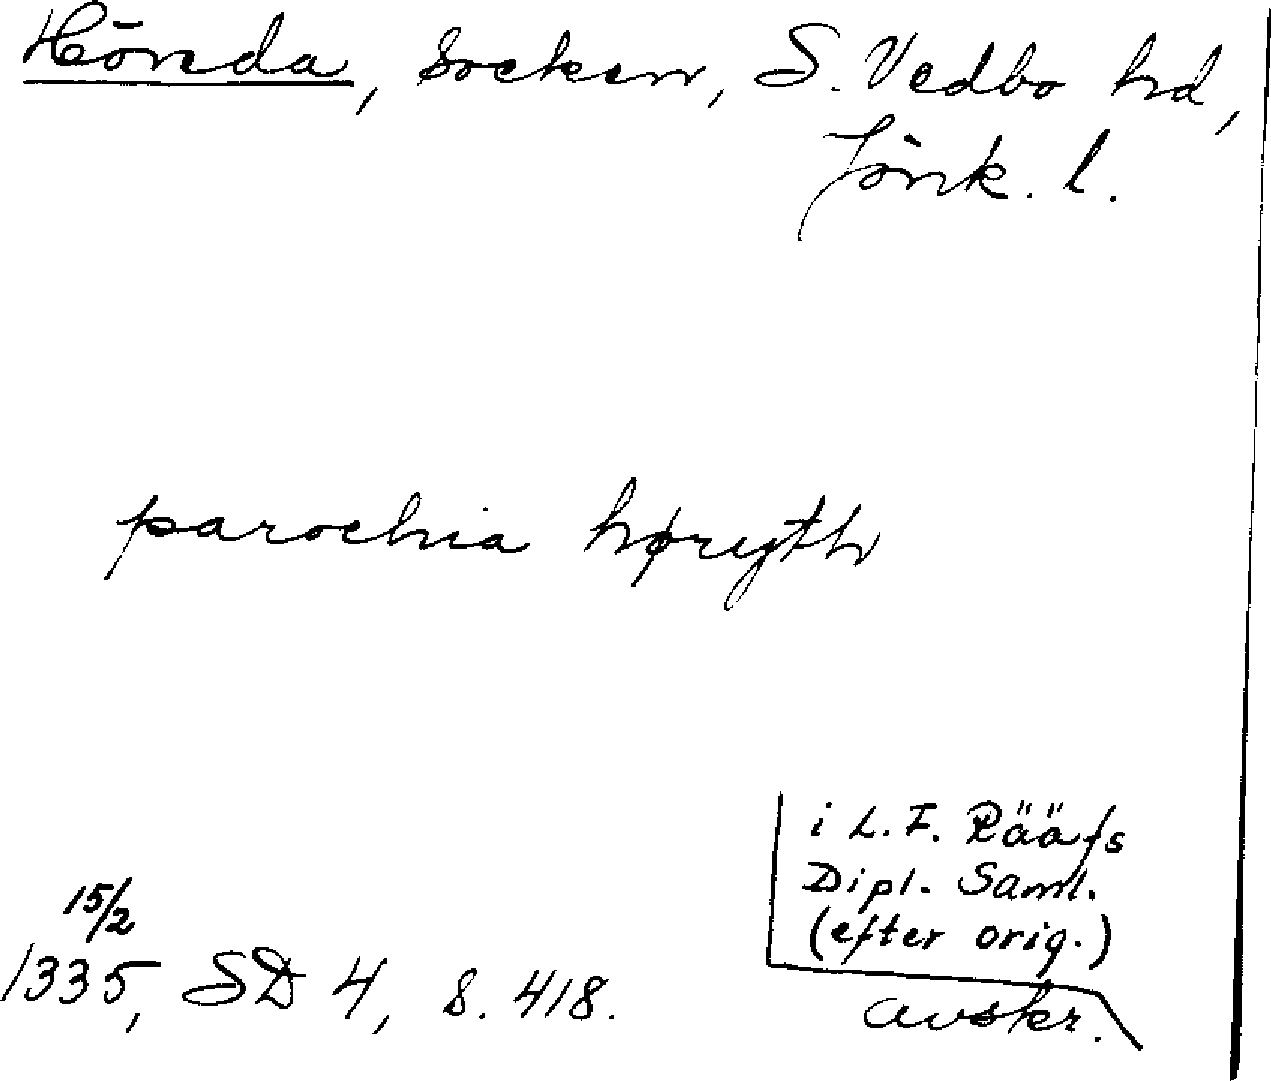 Höreda, socken, S. Vedbo hd,
Jönk. l.
parochia høryth
i L. F. Rääfs
Dipl. Saml.
(efter orig.)
15/2
1335, SD 4, s. 418.
avskr.